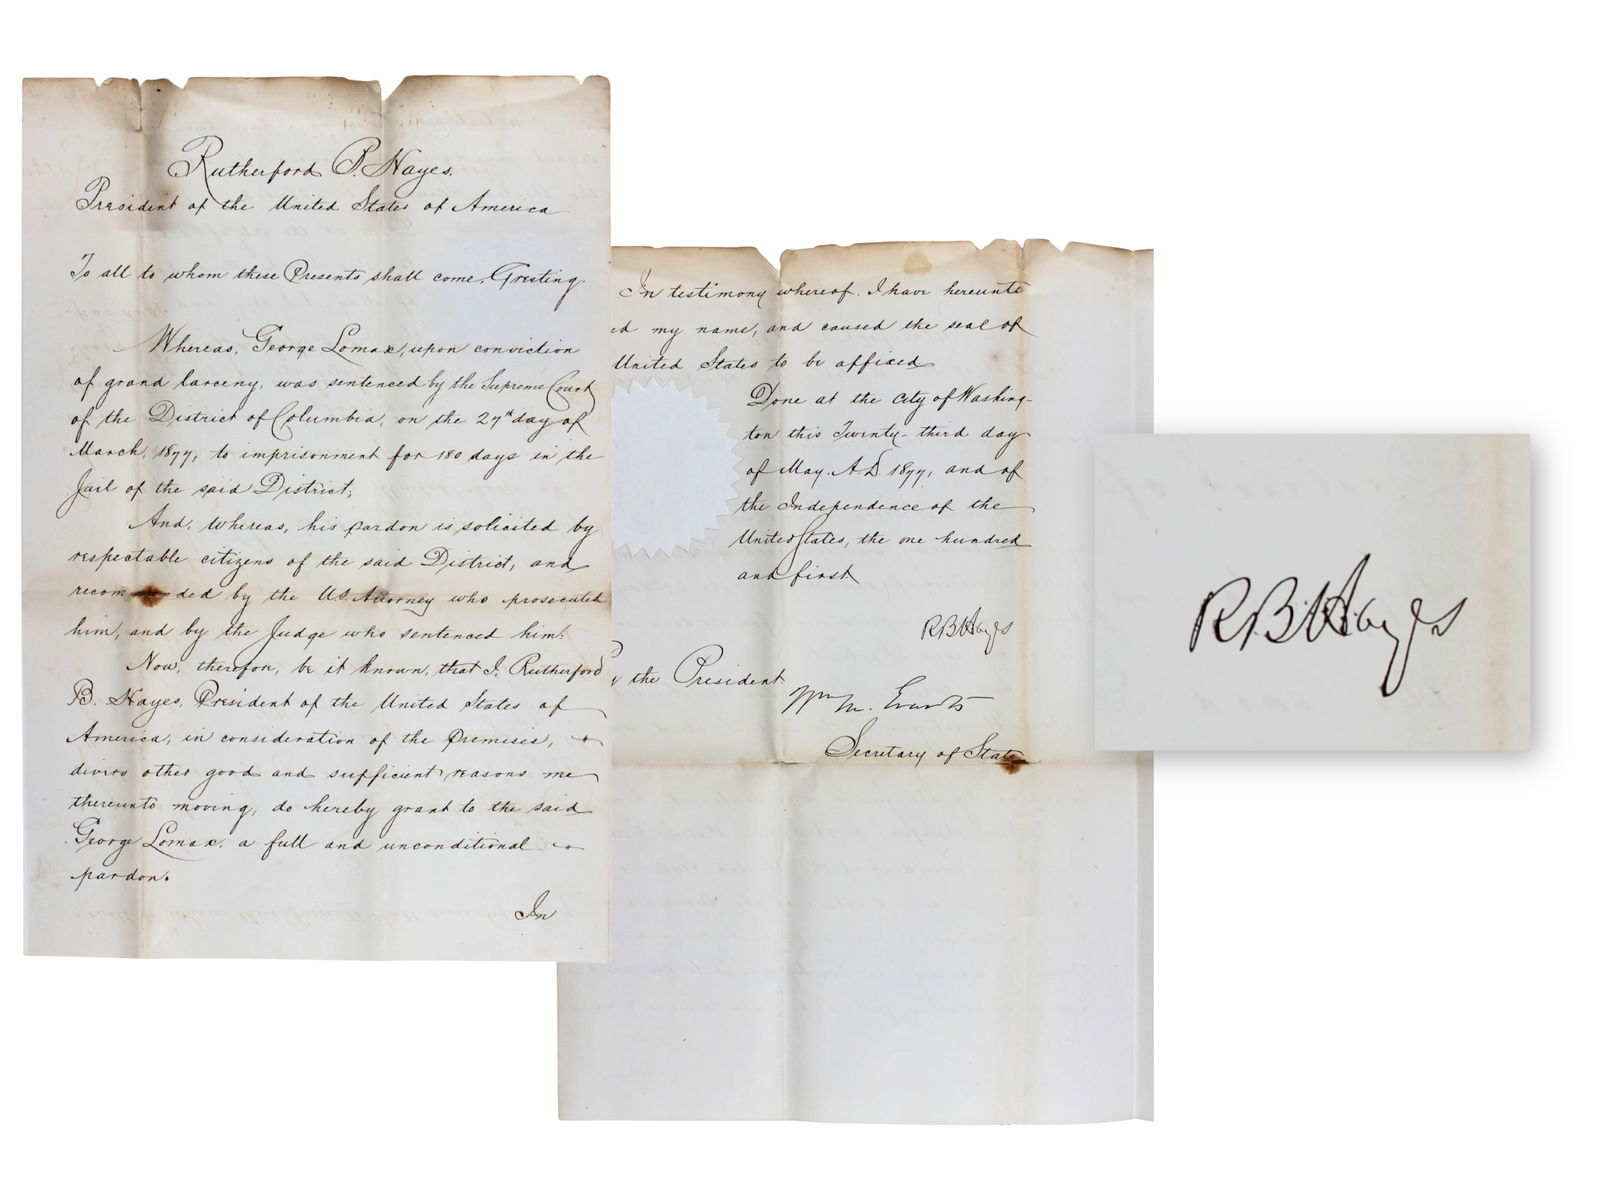 Rutherford B. Hayes.
President of the United States of America
To all to whom these Presents shall come, Greeting.
Whereas, George Lomax, upon conviction
of grand larceny, was sentenced by the Supreme Court
of the District of Columbia, on the 27th day of
March, 1877, to imprisonment for 180 days in the
Jail of the said District;
And, whereas, his pardon is solicited by
respectable citizens of the said District, and
recommended by the U.S. Attorney who prosecuted
him, and by the Judge who sentenced him:
Now, therefore, be it known, that I, Rutherford
B. Hayes, President of the United States of
America, in consideration of the Premises,
divers other good and sufficient reasons me
thereunto moving, do hereby grant to the said
George Lomax, a full and unconditional
pardon.
In
In testimony whereof, I have hereunto
ed my name, and caused the seal of
United States to be affixed
Done at the City of Washing-
ton this Twenty-third day
of May, A.D. 1877, and of
the Independence of the
United States, the one hundred
and first
R B Hayes
the President:
Wm M. Evarts
Secretary of State
R. B. Hayes